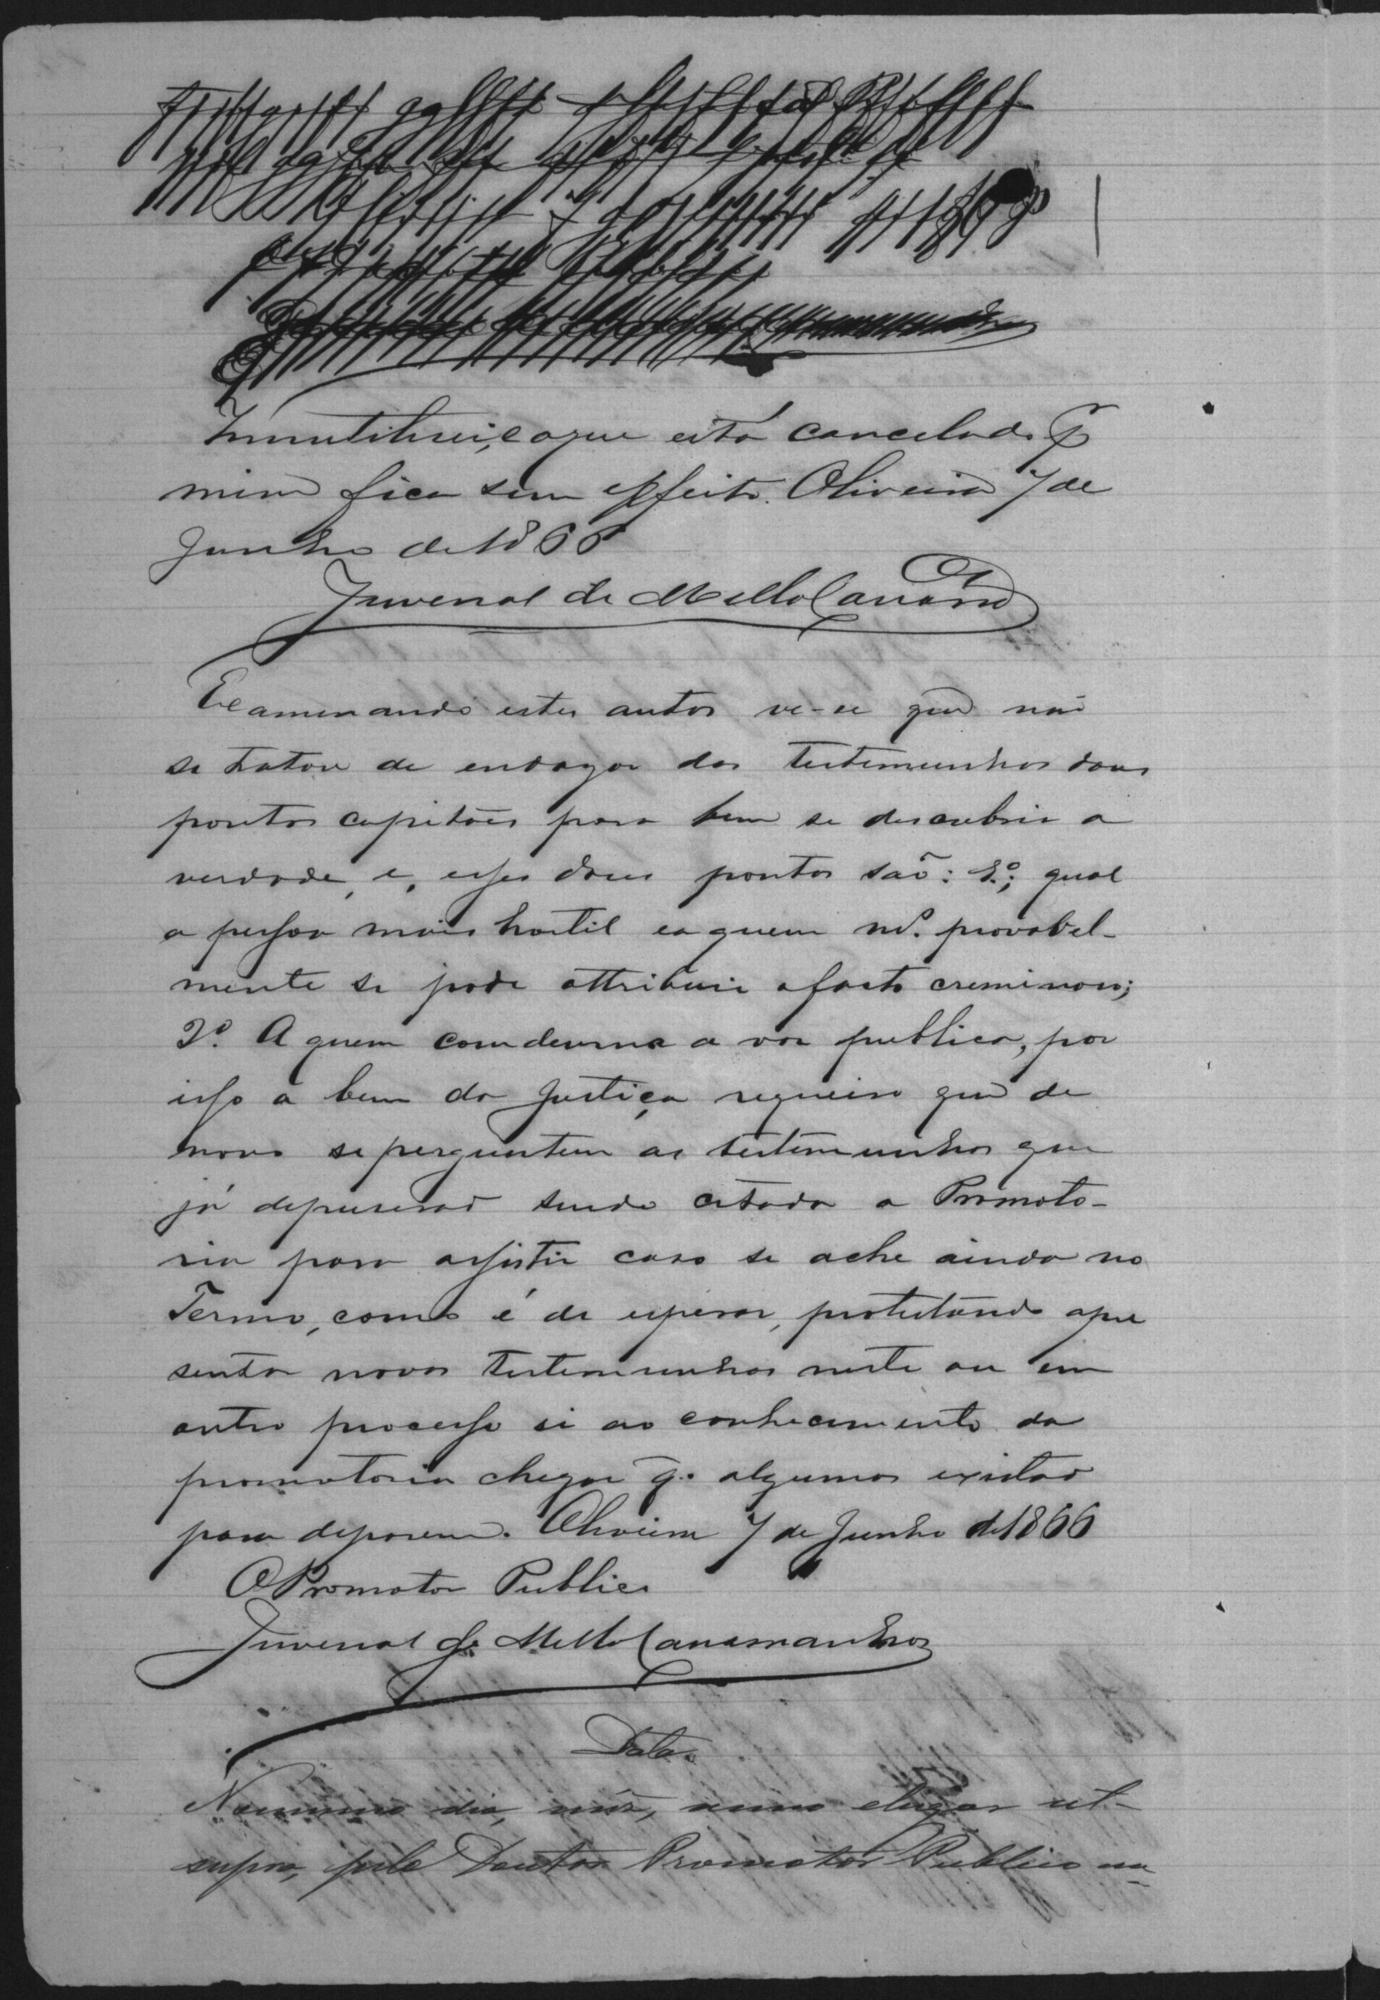 Innutilisei, e o que está cancelado p
mim fica sem effeito. Oliveira 7 de
Junho de 1866
Juvenal de Mello
Examinando estes autos ve-se que não
se tratou de endagar das testemunhas dous
pontos capitães para bem se descubrir a
verdade, e, esses dous pontos são: 1º; qual
a pessoa mais hostil e a quem m.º provabel-
mente se pode attribuir o facto creminoso;
2º. A quem comdemna a voz publica, por
isso a bem da Justiça requeiro que de
novo se perguntem as testemunhas que
já depuserão sendo citada a Promoto-
ria para assistir caso se ache ainda no
Termo, como é de esperar, protestando apre
sentar novas testemunhas neste ou em
outro processo si ao conhecimento da
promotoria chegar q. algumas existão
para deporem. Oliveira 7 de Junho de 1866
O Promotor Publico
Juvenal de Mello
Data
No mesmo dia, mês, anno e lugar ut-
supra, pelo Doutor Promotor Publico